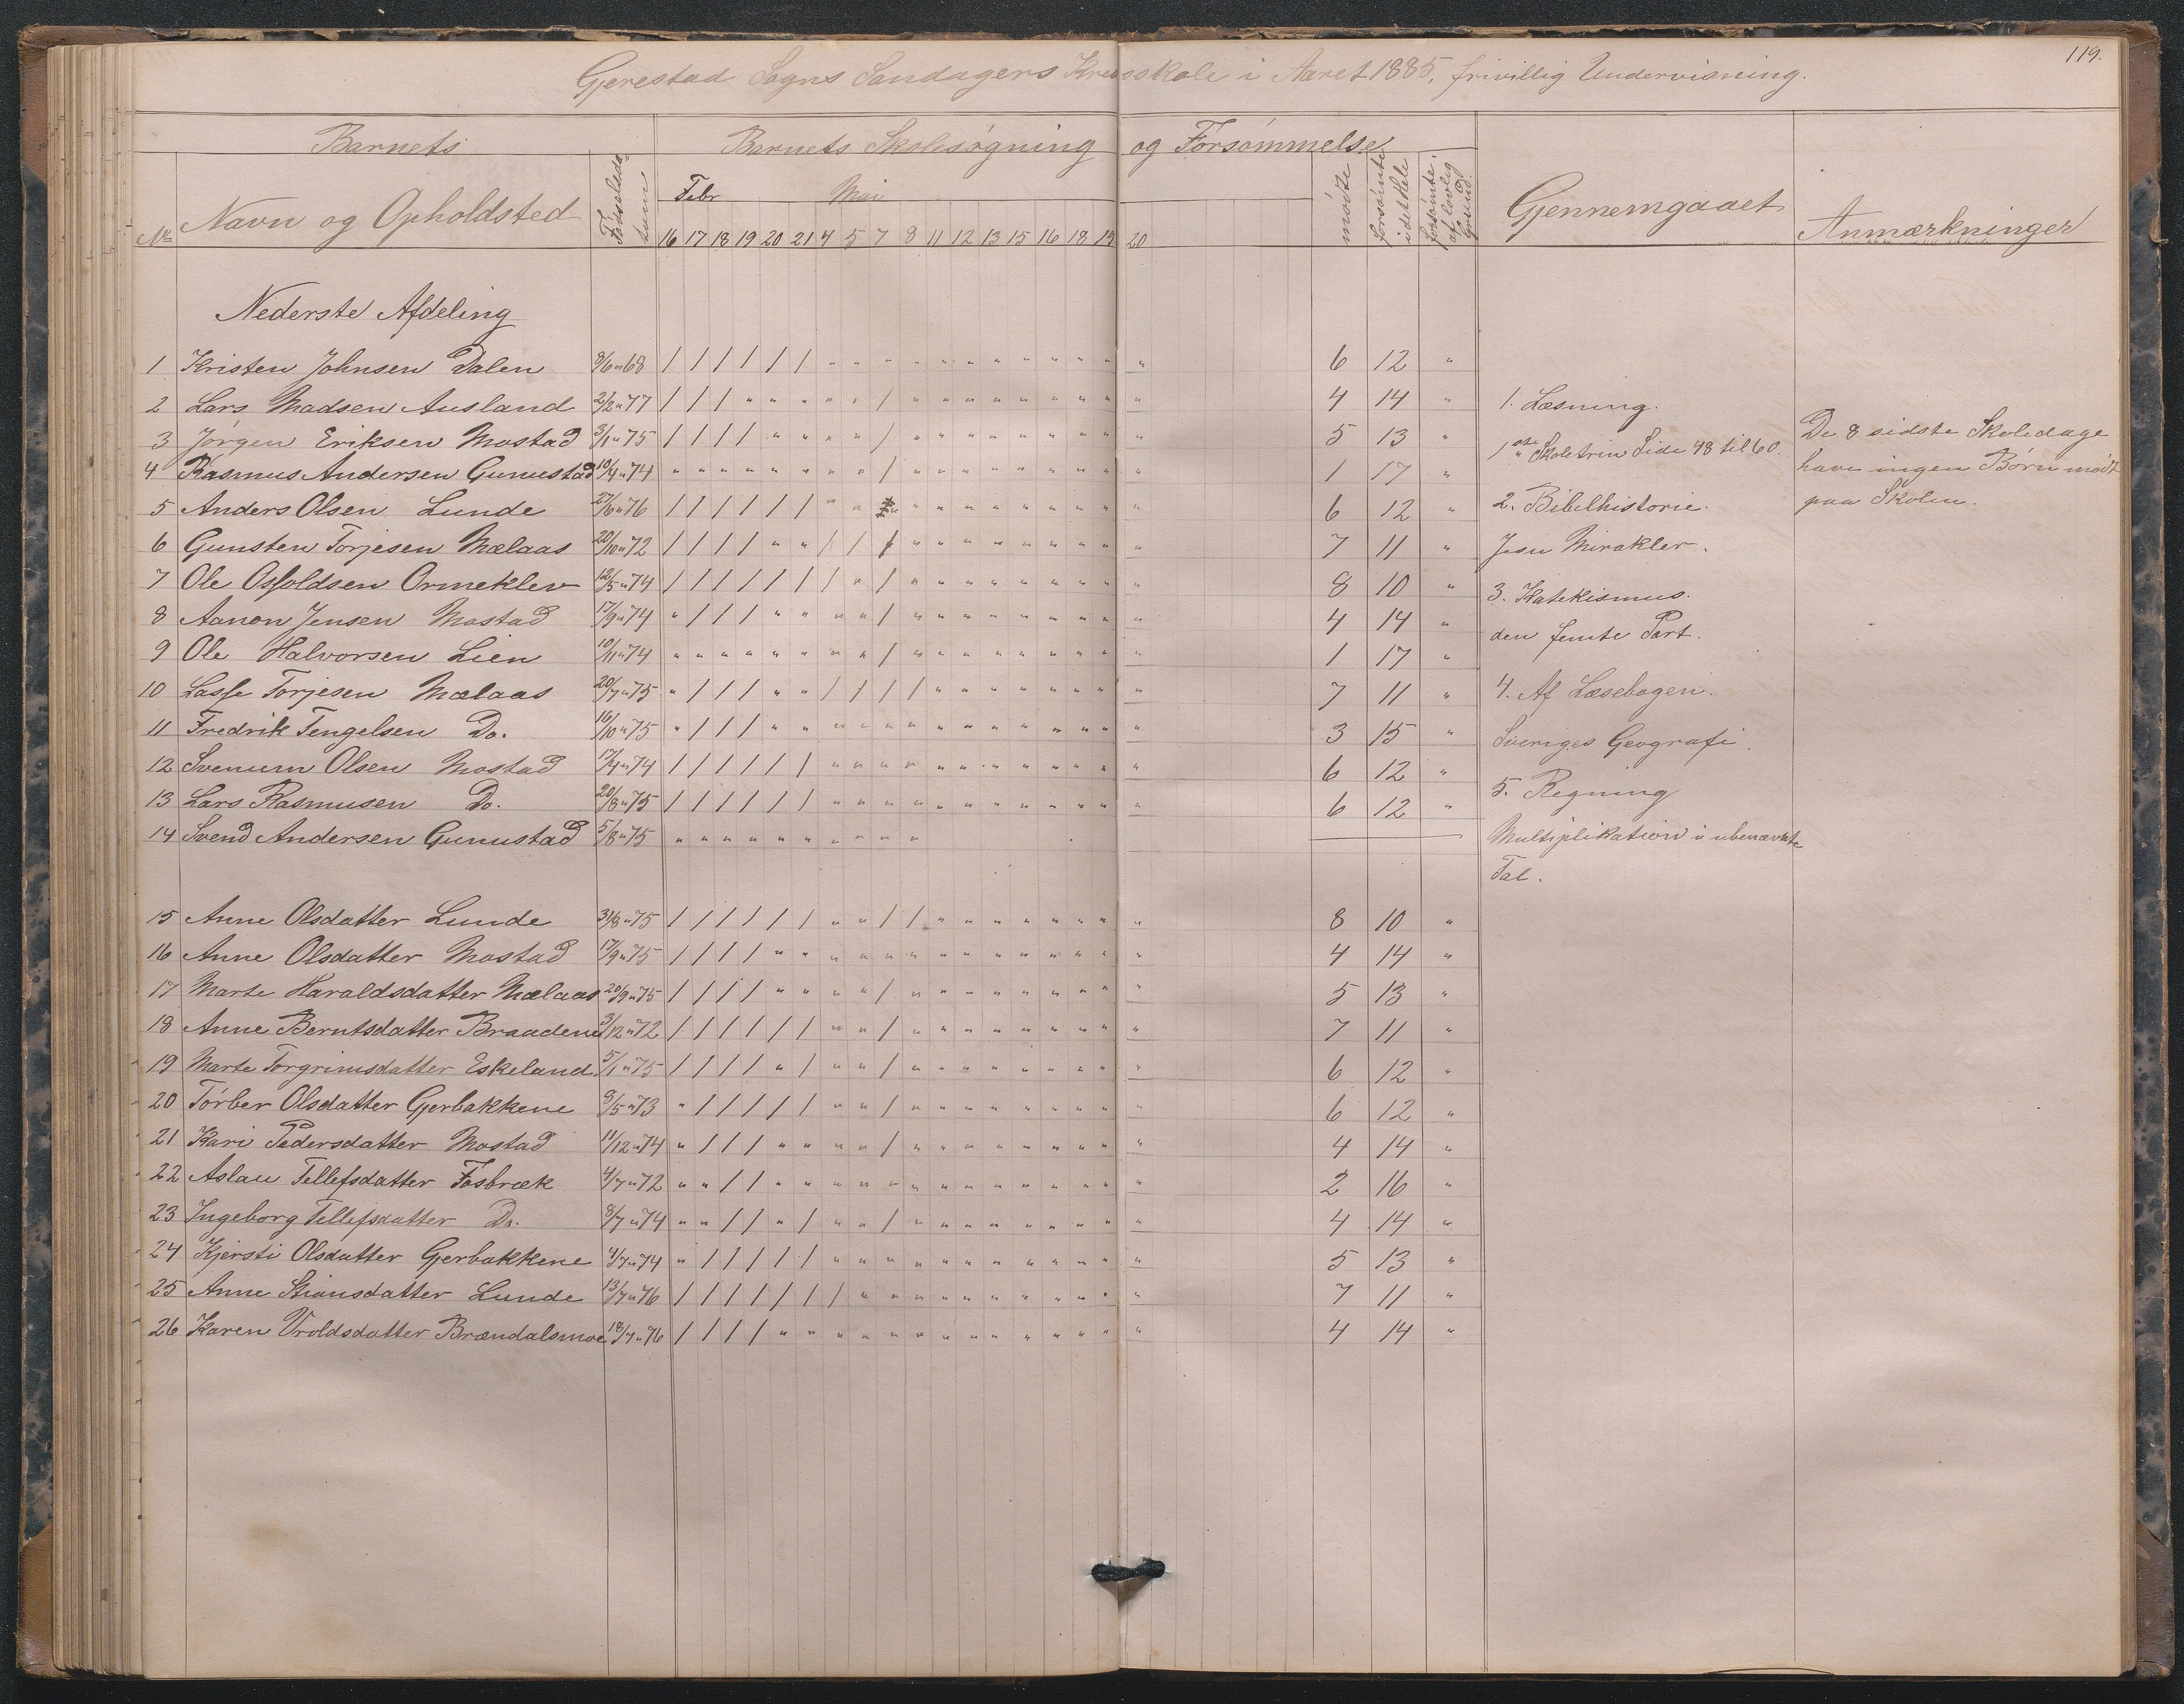 119.
Gjerestad Sogns Sandagers Kredsskole i Aaret 1885, frivillig Undervisning.
Barnets Barnets Skolesøgning og Forsømmelse
No Navn og Opholdsted Fødselsdatum Febr Mai mødte forsømte i det Hele forsømte af lovlig Grund. Gjennemgaaet Anmærkninger
16 17 18 19 20 21 4 5 7 8 11 12 13 15 16 18 19 20
Nederste Afdeling
1 Kristen Johnsen Dalen 8/6 " 68 / / / / / / " " " " " " " " " " " " 6 12 "
2 Lars Madsen Ausland 2/2 " 77 / / / " " " " " / " " " " " " " " " 4 14 "
3 Jørgen Eriksen Mostad 3/1 " 75 / / / / " " " " / " " " " " " " " " 5 13 "
4 Rasmus Andersen Gunustad 10/4 " 74 " " " " " " " " / " " " " " " " " " 1 17 "
5 Anders Olsen Lunde 27/6 " 76 / / / / / / " " " " " " " " " " " 6 12 "
6 Gunsten Torjesen Mælaas 20/10 " 72 / / / / " " / / / " " " " " " " " " 7 11 "
7 Ole Osfoldsen Ormeklev 12/5 " 74 / / / / / / / " / " " " " " " " " " 8 10 "
8 Aanon Jensen Mostad 17/9 " 74 " / / / " " " " / " " " " " " " " " 4 14 "
9 Ole Halvorsen Lien 10/11 " 74 " " " " " " " " / " " " " " " " " " 1 17 "
10 Lasse Torjesen Mælaas 20/7 " 75 " / / / " " / / / / " " " " " " " " 7 11 "
11 Fredrik Tengelsen Do. 16/10 " 75 " / / / " " " " " " " " " " " " " " 3 15 "
12 Svenum Olsen Mostad 17/4 " 74 / / / / / / " " " " " " " " " " " " 6 12 "
13 Lars Rasmusen Do. 20/8 " 75 / / / / / / " " " " " " " " " " " " 6 12 "
14 Svend Andersen Gunustad 5/8 " 75 " " " " " " " " " "
15 Anne Olsdatter Lunde 31/8 " 75 / / / / / / " " / / " " " " " " " " 8 10 "
16 Anne Olsdatter Mostad 17/9 " 75 / / / / " " " " " " " " " " " " " " 4 14 "
17 Marte Haraldsdatter Mælaas 20/9 " 75 / / / / " " " " / " " " " " " " " " 5 13 "
18 Anne Berntsdatter Braadene 3/12 " 72 / / / / / / " " / " " " " " " " " " 7 11 "
19 Marte Torgrimsdatter Eskeland 5/1 " 75 / / / / " / " " / " " " " " " " " " 6 12 "
20 Tørber Olsdatter Gjerbakkene 8/5 " 73 " / / / / / " " / " " " " " " " " " 6 12 "
21 Kari Pedersdatter Mostad 11/12 " 74 " / / / " " " " / " " " " " " " " " 4 14 "
22 Aslau Tellefsdatter Fosbræk 4/7 " 72 " " / / " " " " " " " " " " " " " " 2 16 "
23 Ingeborg Tellefsdatter Do. 8/7 " 74 " " / / " / " " / " " " " " " " " " 4 14 "
24 Kjersti Olsdatter Gjerbakkene 4/7 " 74 " / / / / / " " " " " " " " " " " " 5 13 "
25 Anne Stiansdatter Lunde 13/7 " 76 / / / / / / / " " " " " " " " " " " 7 11 "
26 Karen Vroldsdatter Brændalsmoe 18/7 " 76 / / / / " " " " " " " " " " " " " " 4 14 "
1. Læsning.
1ste Skoletrin Side 48 til 60.
2. Bibelhistorie.
Jesu Mirakler.
3. Katekismus.
den femte Part.
4. Af Læsebogen.
Sveriges Geografi.
5. Regning
Multiplikation i ubenævnte
Tal.
De 8 sidste Skoledage
have ingen Børn mødt
paa Skolen.